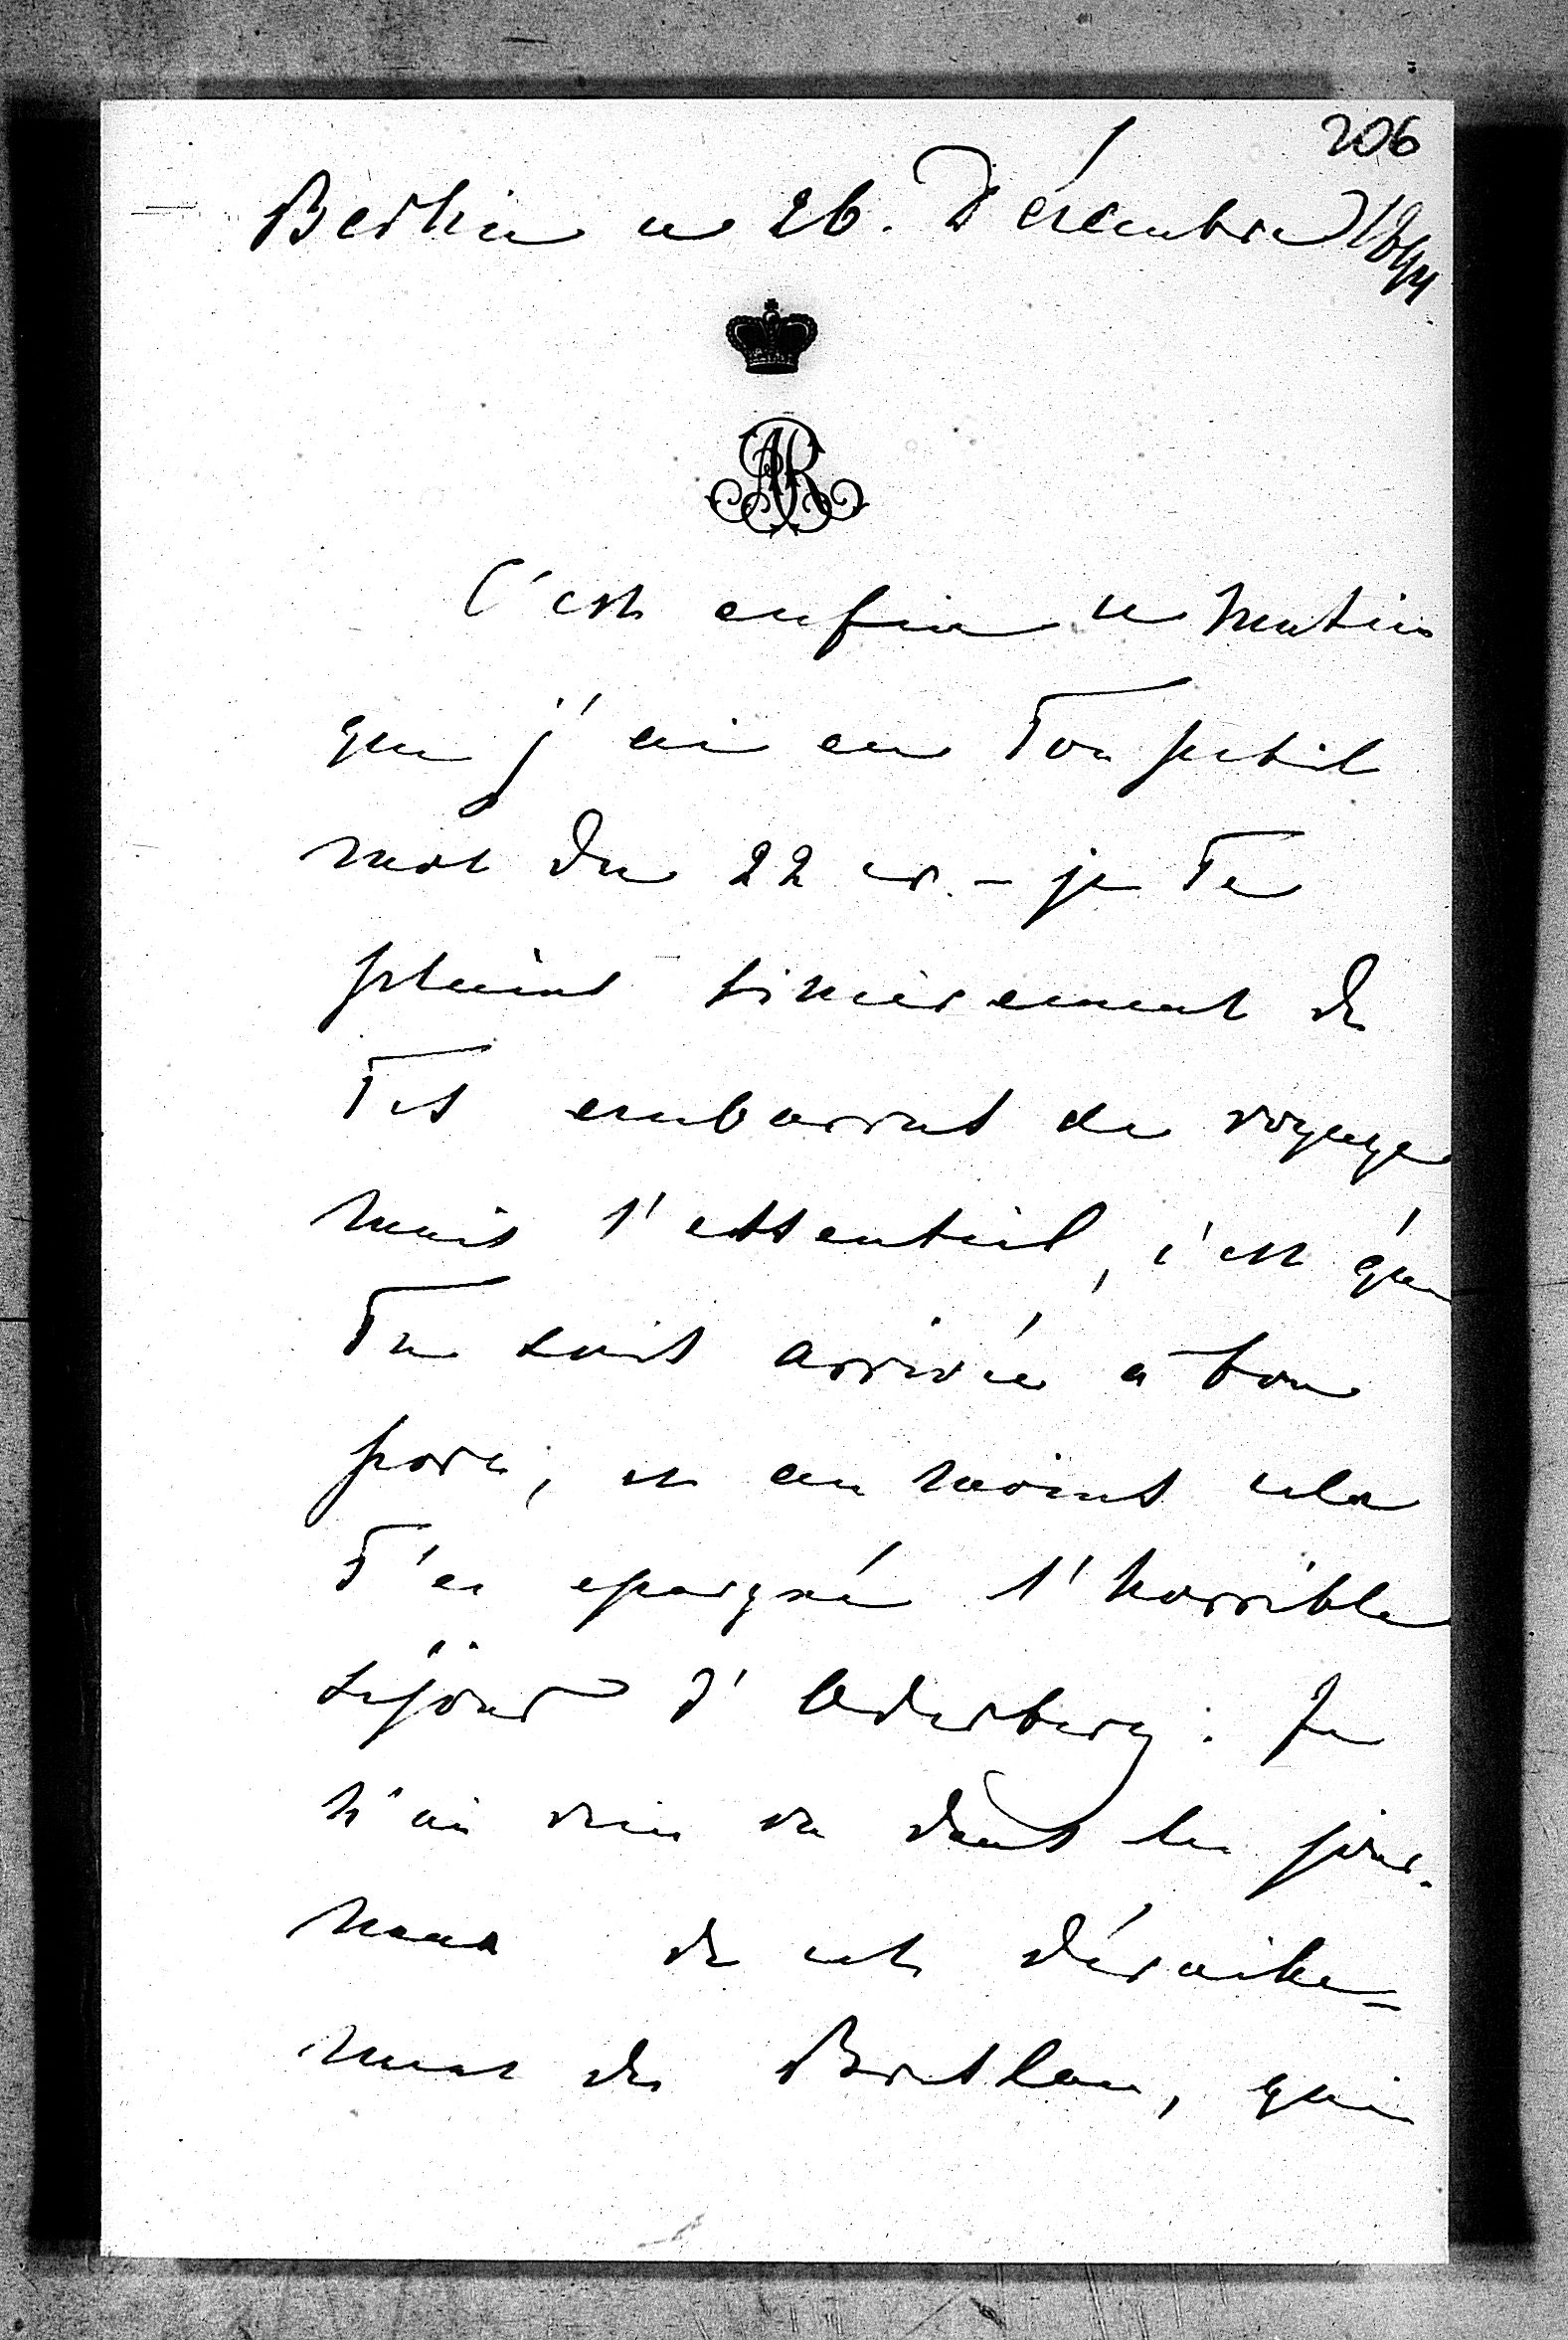 206
Berlin ce 26. Décembre 1894
AR
C'est enfin ce matin
que j'ai eu Ton petit
mot du 22 cr. – je Te
plains sincèrement de
Tes embarras de voyage
mais l'essentiel, c'est que
Tu sois arrivée à bon
port, et au moins cela
T'a epargné l'horrible
séjour d'Oderberg. Je
n'ai rien vu dans les jour-
naux de cet déraille-
ment de Breslau, qui